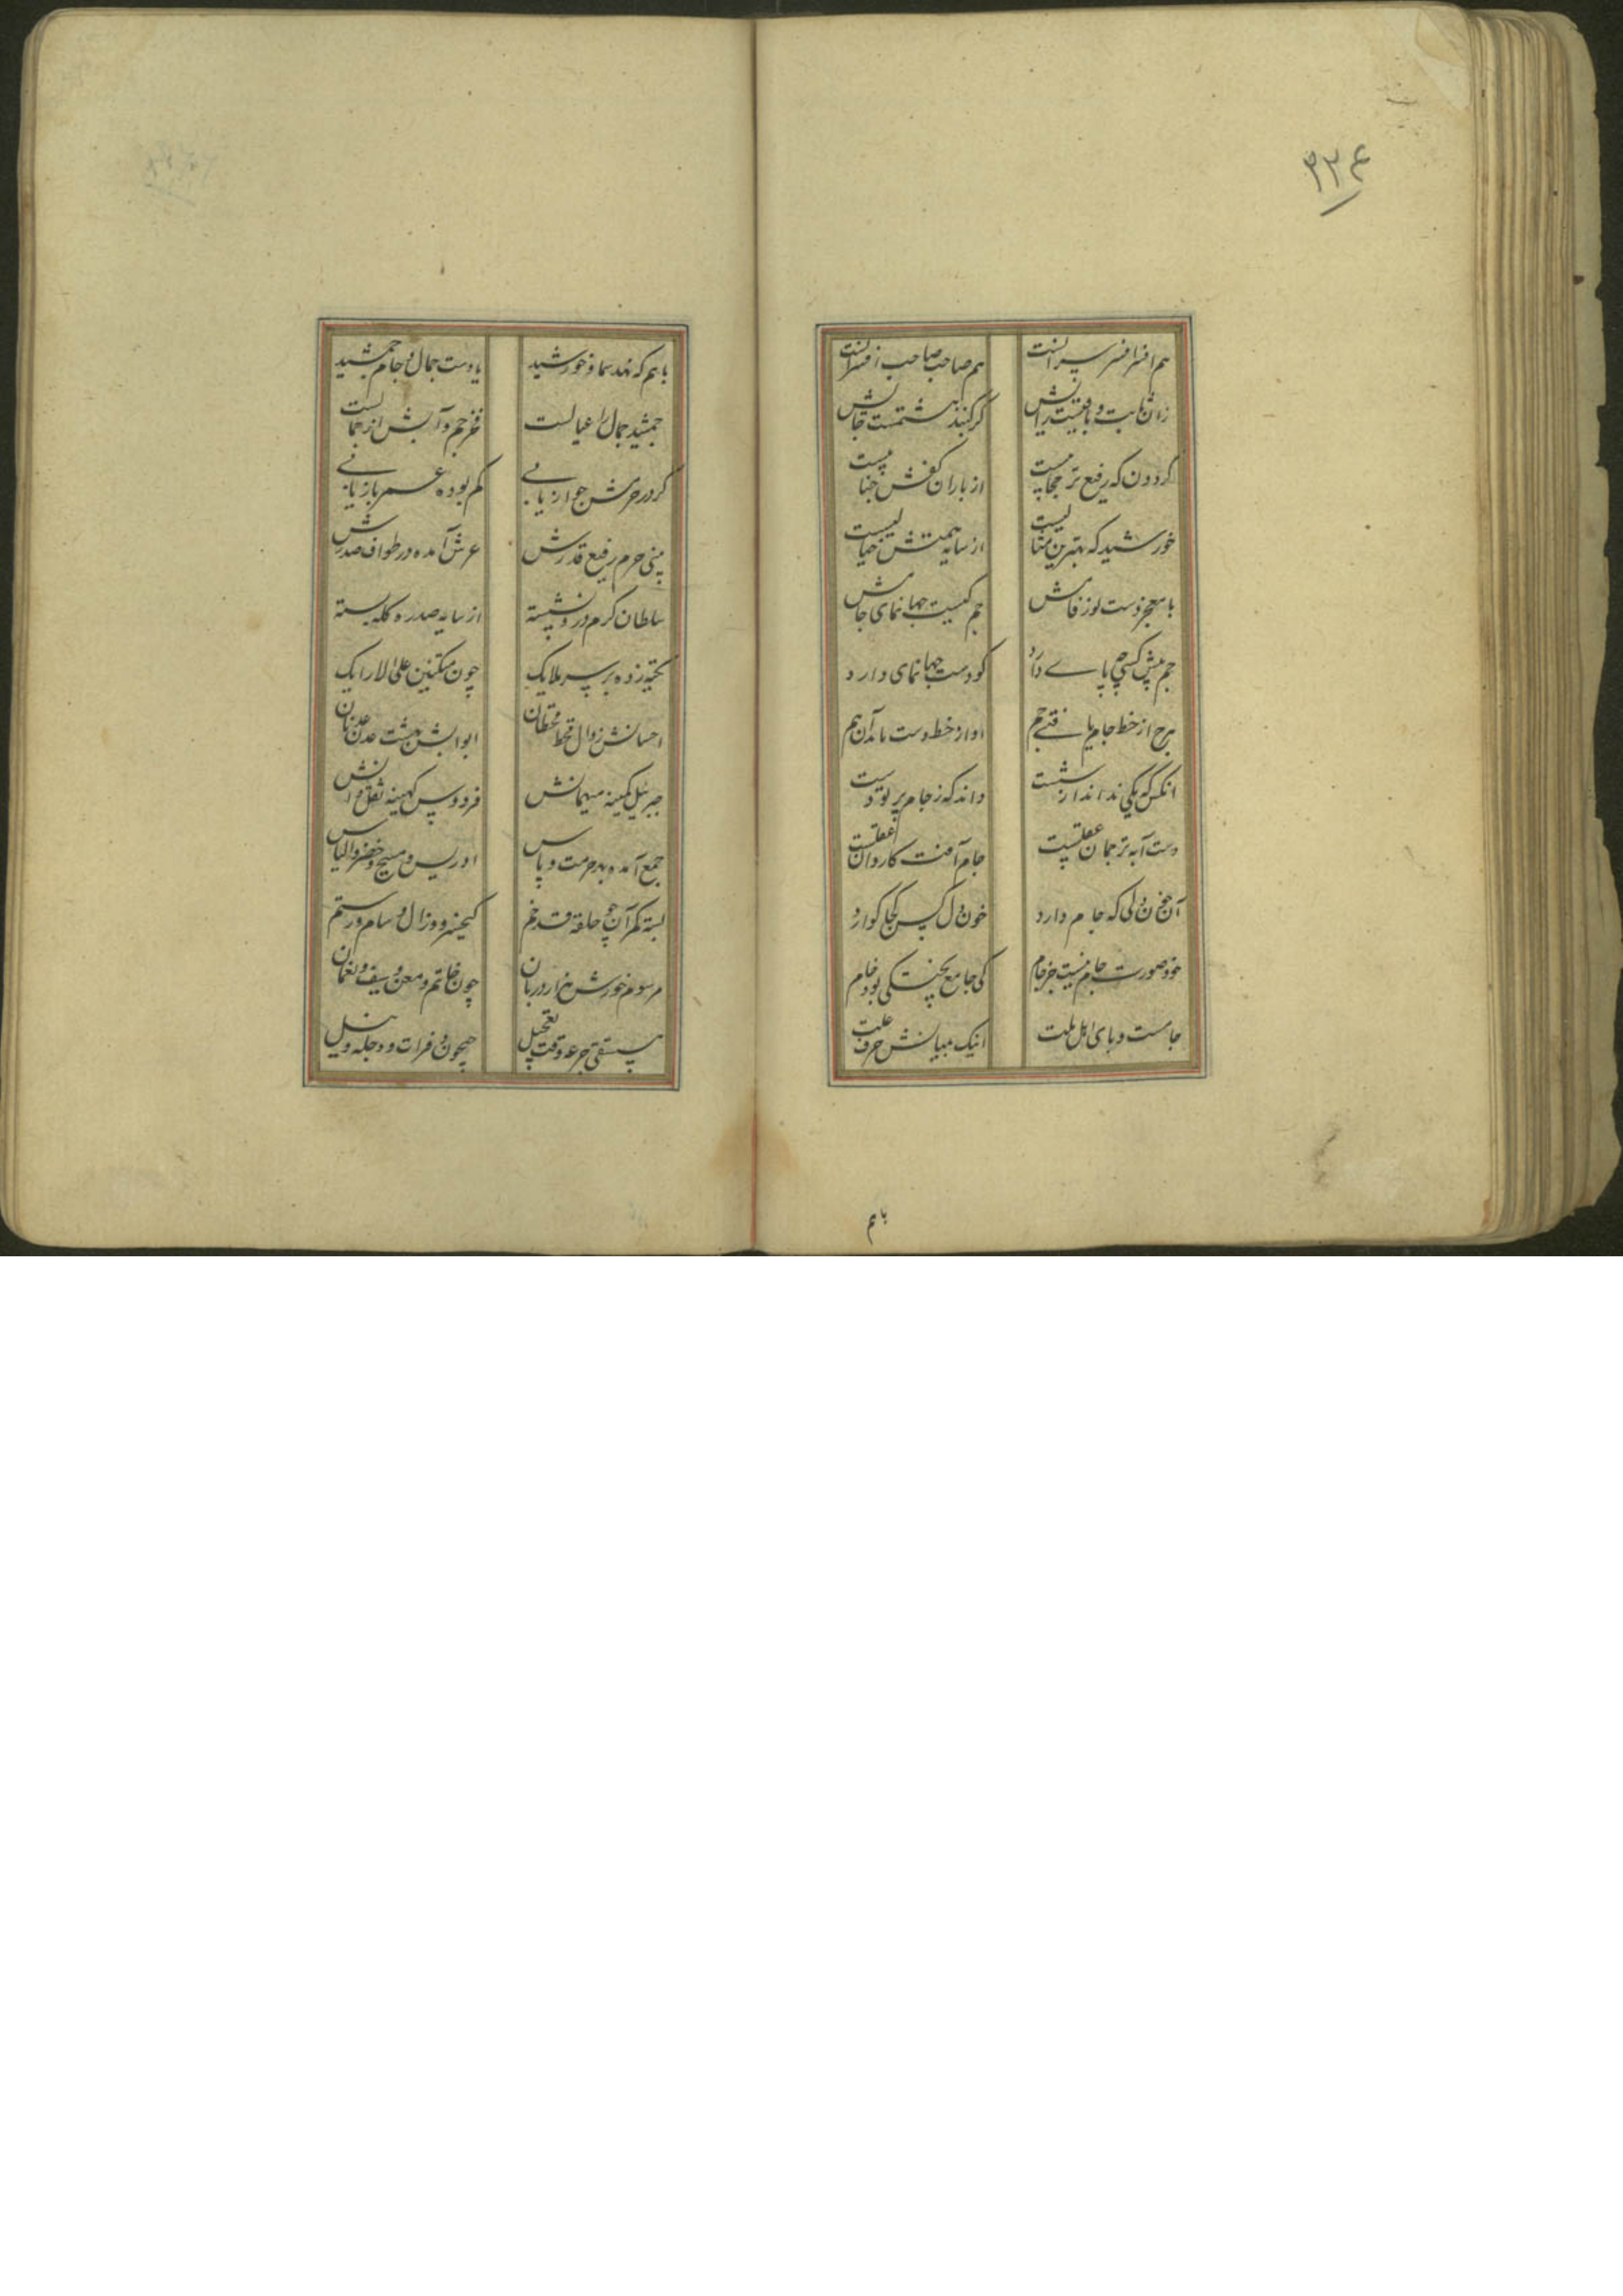 ۳۲۴
هم افسر افسر سرانست هم صاحب صاحب افسرانست
زان ثابت و باقیست رایش کز گنبد هشتمست جایش
گردون که رفیع تر حجابیست از باران کفش حبابیست
خورشید که بهترین مثالیست از سایه همتش خیالیست
با معجز دست نور فامش جم کیست جهانمای جامش
جم پیش کسی چه پای دارد کو دست جهانمای دارد
هرچ از خط جام یافتی جم او از خط دست یابد آن هم
آنکس که یکی نداند از شست داند که ز جام برتر دست
دست آیه ترجمان عقلست جام آفت کاروان عقلست
آن خون دلی که جام دارد خون دل کس کجا گوارد
خود صورت جام نیست جز جام کی جامع پختگی بود خام
جامست وبای اهل ملت اینک میانش حرف علت
باهم
باهم که نهد سما و خورشید یا دست جمال و جام جمشید
جمشید جمال را عیالست فخر جم و آبش از جمالست
گر در حرمش جواز یابی گم بوده عمر باز یابی
بینی حرم رفیع قدرش عرش آمده در طواف صدرش
سلطان کرم درو نشسته از سایه صدره کله بسته
تکیه زده بر سر ملایک چون متکئین علی الارایک
احسانش زوال قحط قحطان ابوابش بهشت عدن عدنان
جبرئیل کمینه میهمانش فردوس کهینه نقل خوانش
جمع آمده بهر حرمت و پاس ادریس و مسیح و خضر و الیاس
بسته کمر آن چو حلقه قد خم کیخسرو و زال و سام و رستم
مرسوم خورش هزار دربان چون حاتم و معن و سیف و نعمان
مستسقی جرعه وقت تعجیل جیحون و فرات و دجله و نیل